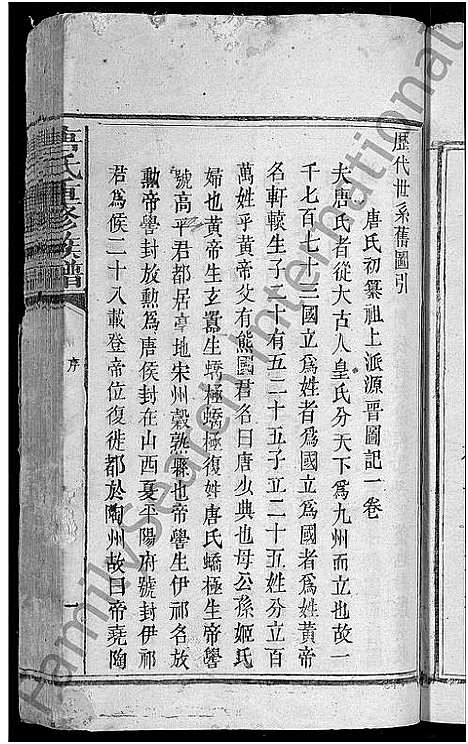 歷代世系舊圖引
唐氏初纂祖上派源晋圖記一卷
夫唐氏者從大古人皇氏分天下爲九州而立也故一
千七百七十三國立爲姓者爲國立爲國者爲姓黃帝
名軒轅生子二十有五二十五子立二十五姓分立百
萬姓乎黃帝父有熊國君名曰唐少典也母公孫姬氏
婦也黃帝生玄囂生蟜極蟜極復姓唐氏蟜極生帝嚳
號高平君都居亭地宋州榖熟縣也帝嚳生伊祁名放
勳帝嚳封放勳爲唐侯封在山西夏平陽府號封伊祁
君爲侯二十八載登帝位復徙都於陶州故曰帝堯陶
唐氏重修族譜
序
一
FamilySearch International